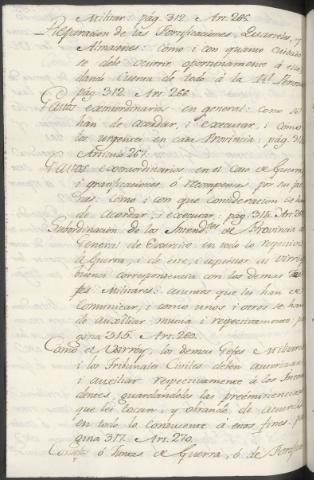 Militar: pág. 312. Art. 265.
Preparacion de las Fortificaciones, Quarteles, y
Almacenes: como i con quanto cuidado
se debe ocurrir oportunamente á ella
dando Cuenta de todo á la Rl. Persona
pág. 312. Art. 266.
Gastos extraordinarios en general: como se
han de acordar, i executar, i como
los urgentes en cada Provincia: pág. 313
Articulo 267.
Gastos extraordinarios en el Caso de Guerra
i gratificaciones, ó recompensas por su
como i con que consideracion se han
de Acordar, i executar: pág. 314. Art. 268
Subordinacion de los Intend.tes de Provincia al
General de Exercito en todo lo respectivo
á Guerra, i de este, i aquellos al Virrey
buena correspondencia con los demas Ge-
fes Militares: asuntos que les han de
Comunicar, i como unos i otros se han
de auxiliar mutua i respectivamente: pa
gina 315. Art. 269.
Como el Virrey, los demas Gefes Militares
i los Tribunales Civiles deben autorizar
i auxiliar respectivamente á los Inten
dentes, guardandoles las preeminencias
que les tocan, y obrando de acuerdo
en todo lo conducente á estos fines: pa
gina 317. Art. 270.
ó de Guerra, ó de